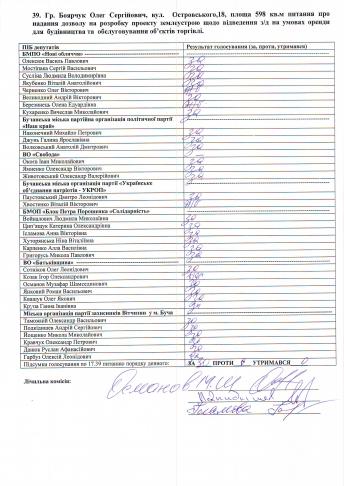 39. Гр. Боярчук Олег Сергійович, вул. Островського,18, площа 598 кв.м питання про
надання дозволу на розробку проекту землеустрою щодо відведення з/д на умовах оренди
для будівництва та обслуговування об'єктів торгівлі.
ПІБ депутатів Результат голосування (за, проти, утримався)
БМПО «Нові обличчя»
Олексюк Василь Павлович за
Мостіпака Сергій Васильович за
Сусліна Людмила Володимирівна за
Якубенко Віталій Анатолійович
Черненко Олег Вікторович
Великодний Андрій Вікторович за
Березинець Олена Едуардівна
Кухаренко Вячеслав Миколайович за
Бучанська міська партійна організація політичної партії
«Наш край»
Наконечний Михайло Петрович за
Джунь Галина Ярославівна за
Волковський Анатолій Дмитрович за
ВО «Свобода»
Ожога Іван Миколайович за
Яхименко Олександр Вікторович за
Животовський Олександр Валерійович за
Бучанська міська організація партії «Українське
об'єднання патріотів - УКРОП»
Паустовський Дмитро Леонідович за
Хвостенко Віталій Вікторович
БМОП «Блок Петра Порошенка «Солідарність»
Войцалович Людмила Миколаївна за
Цип'ящук Катерина Олександрівна за
Ісламова Анна Вікторівна за
Хуторянська Ніна Віталіївна за
Карпенко Алла Василівна за
Григорусь Микола Павлович за
ВО «Батьківщина»
Сотніков Олег Леонідович за
Козак Ігор Олександрович
Османов Музафар Шамседінович за
Яцковий Роман Васильович за
Ковшун Олег Якович за
Крута Ганна Іванівна за
Міська організація партії захисників Вітчизни у м. Буча
Тамковий Олександр Васильович за
Подвідишев Андрій Сергійович за
Йощенко Микола Миколайович за
Кравчук Олександр Петрович за
Данюк Руслан Афанасійович за
Гарбуз Олексій Леонідович за
Підсумки голосування по 17.39 питанню порядку денного: ЗА ПРОТИ УТРИМАВСЯ 0
Лічильна комісія: Османов М.Ш.
Іслямова